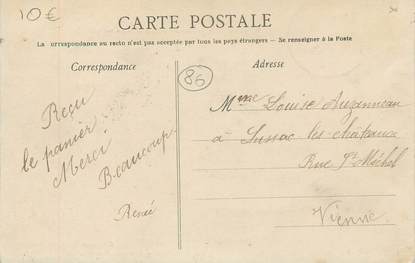 10€
CARTE POSTALE
La correspondance au recto n'est pas acceptée par tous les pays étrangers — Se renseigner à la Poste
Correspondance
Adresse
86
Reçu
le panier
Merci
Beaucoup.
Renée
Mme Louise Auzanneau
à Lussac les châteaux
Rue St Michel
Vienne.